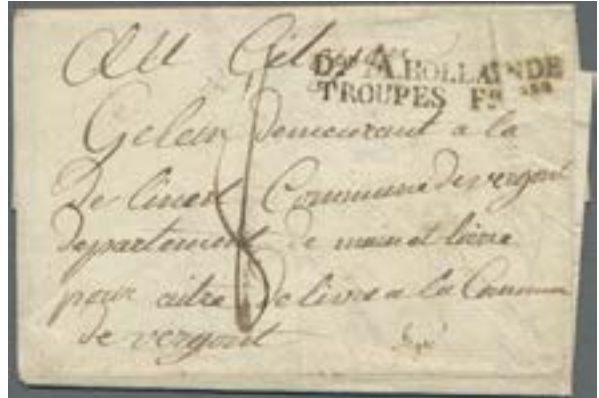 Au Cit
Don A. HOLLAINDE
TROUPES F
Gelin demeurant a la
De Commune de vergont
departement de main et loire
pour de livre a la Commun
de vergont